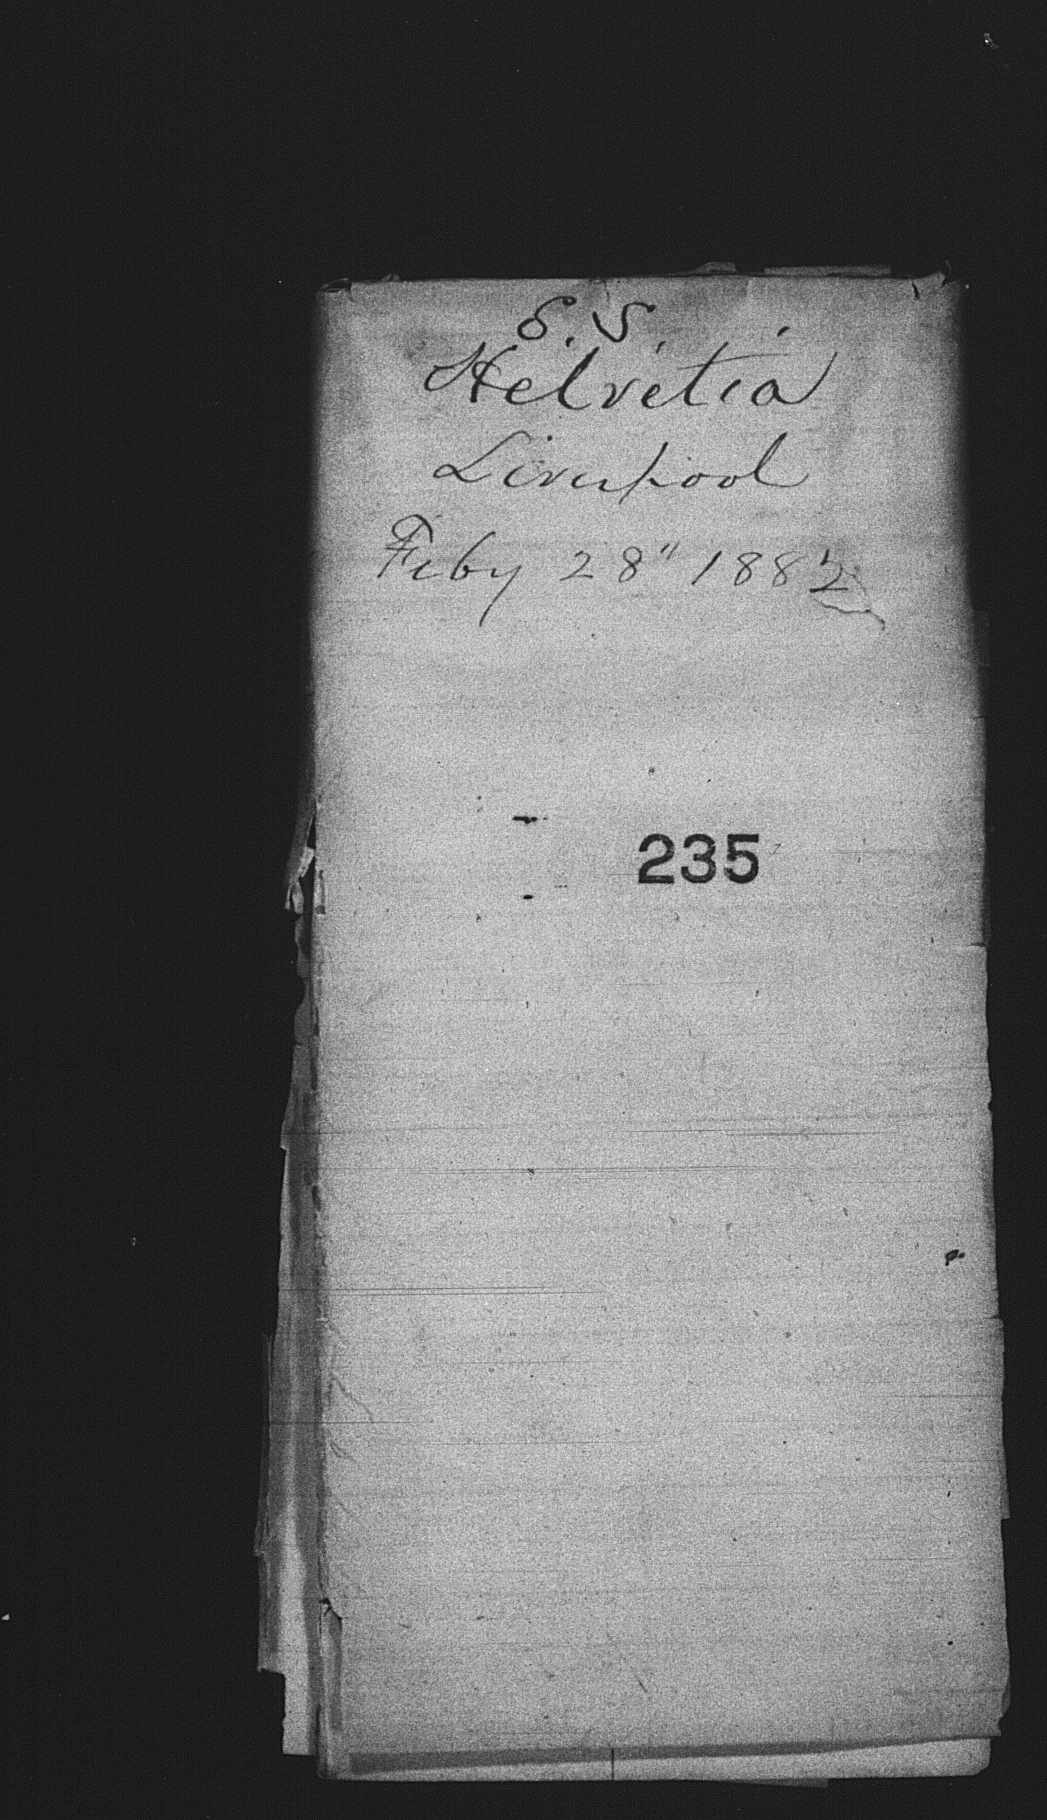 S. S.
Helvetia
Liverpool
Feby 28" 1882
235